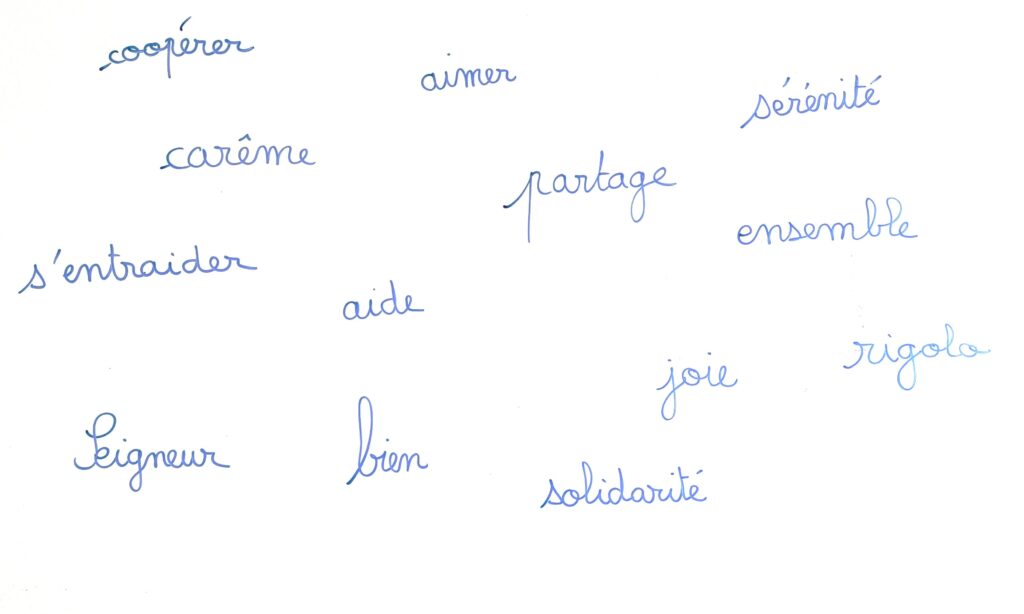 coopérer
aimer
sérénité
carême
partage
ensemble
s'entraider
aide
joie
rigolo
Seigneur
bien
solidarité